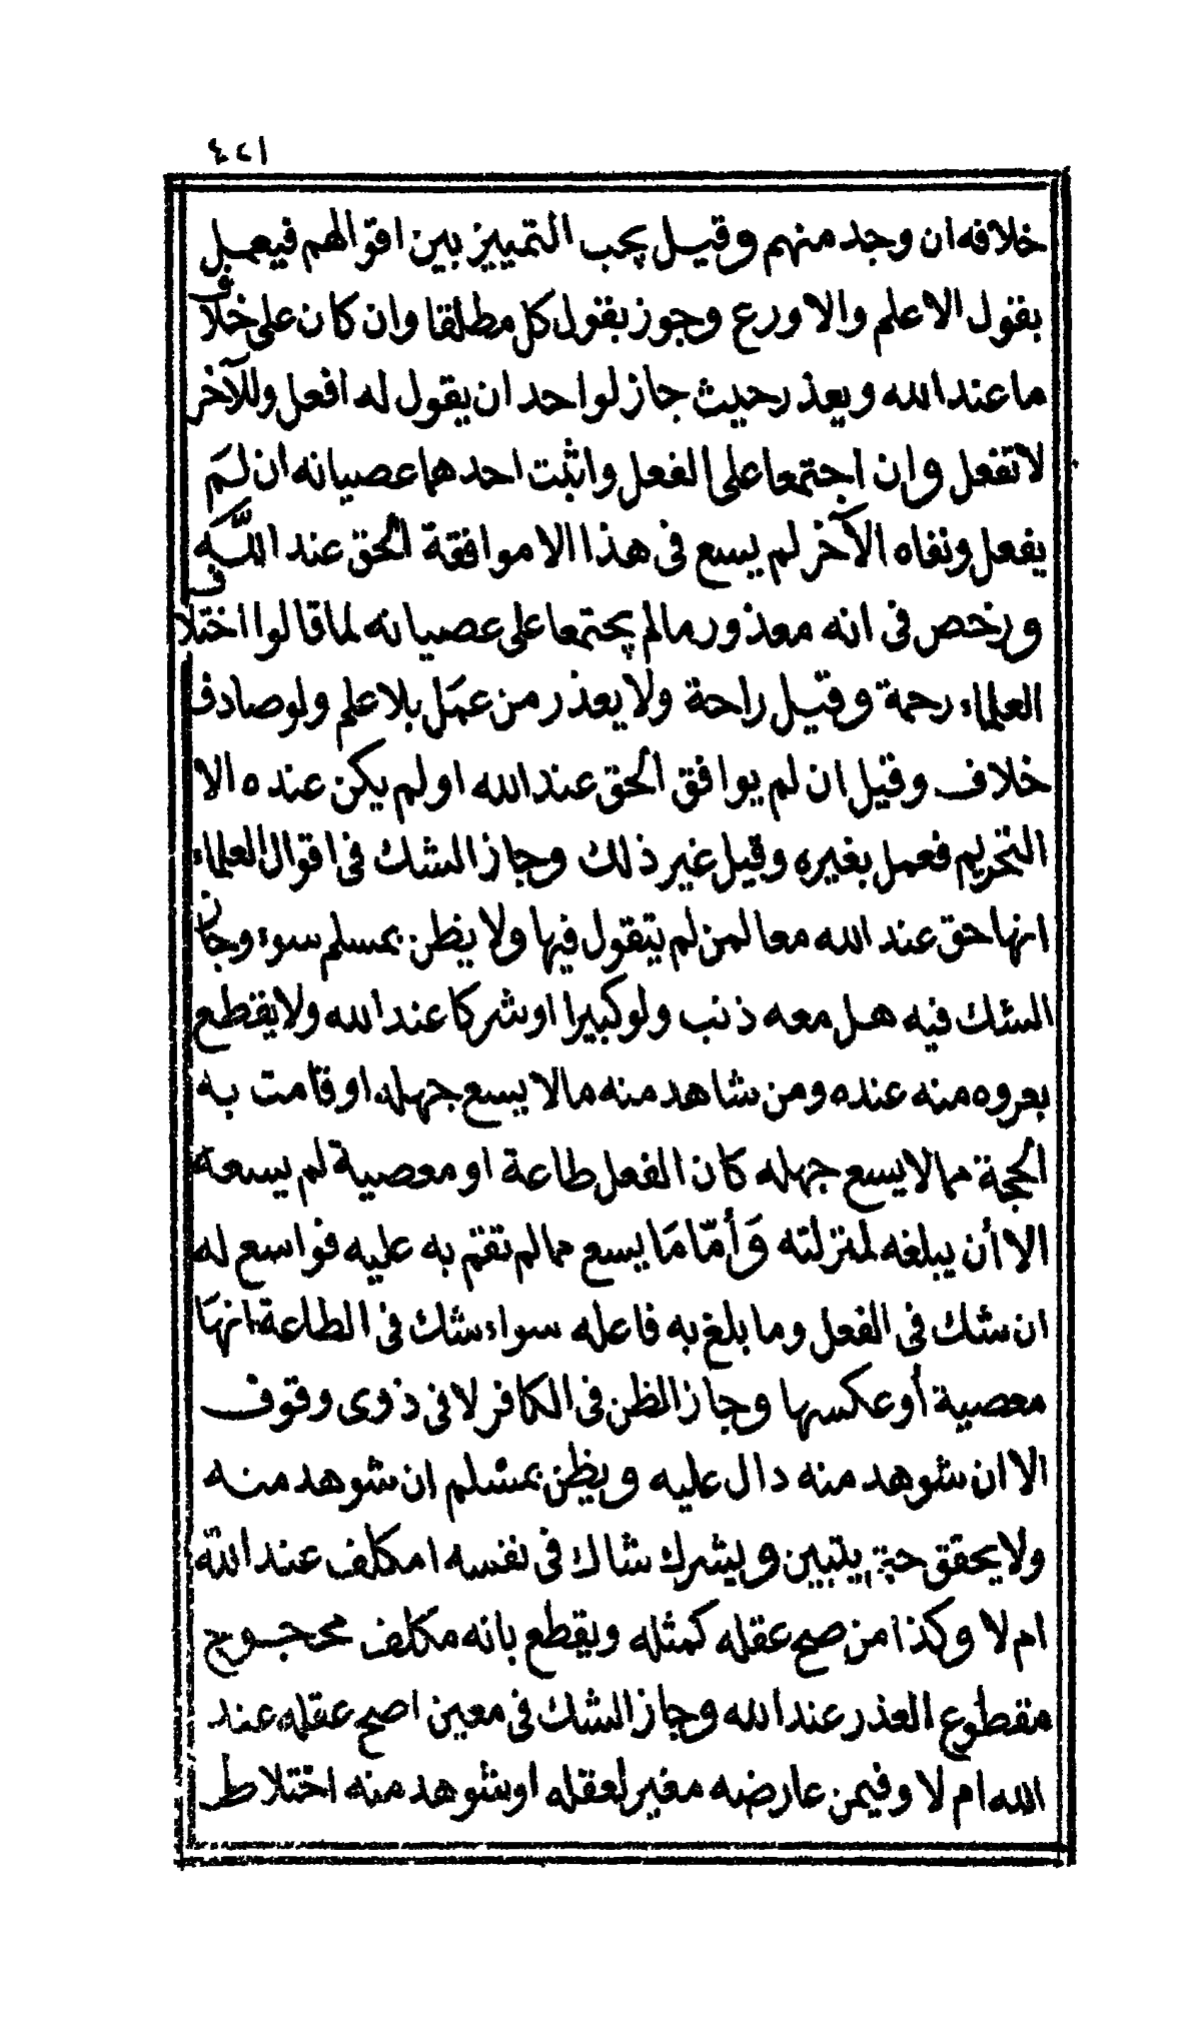 ٤٢١
خلافه ان وجد منهم وقيل يجب التمييز بين اقوالهم فيعمل
بقول الاعلم والاورع وجوز بقول كل مطلقا وان كان على خلاف
ما عند الله ويعذر حيث جاز لواحد ان يقول له افعل وللآخر
لا تفعل وان اجتمعا على الفعل واثبت احدهما عصيانه ان لم
يفعل ونفاه الآخر لم يسع فى هذا الا موافقة الحق عند اللّه
ورخص فى انه معذور ما لم يجتمعا على عصيانه لما قالوا اختلاف
العلماء رحمة وقيل راحة ولا يعذر من عمَل بلا علم ولو صادف
خلاف وقيل ان لم يوافق الحق عند الله او لم يكن عنده الا
التحريم فعمل بغيره وقيل غير ذلك وجاز الشك فى اقوال العلماء
انها حق عند الله معا لمن لم يتقول فيها ولا يظن بمسلم سوء وجاز
الشك فيه هل معه ذنب ولو كبيرا او شركا عند الله ولا يقطع
بعروه منه عنده ومن شاهد منه ما لا يسع جهله او قامت به
الحجة مما لا يسع جهله كان الفعل طاعة او معصية لم يسعه
الا أن يبلغه لمنزلته وَأمّا مَا يسع مما لم تقم به عليه فواسع له
ان شك فى الفعل وما بلغ به فاعله سواء شك فى الطاعة انهَا
معصية أو عكسها وجاز الظن فى الكافر لا فى ذوى وقوف
الا ان شوهد منه دال عليه ويظن بمسلم ان شوهد منه
ولا يحقق حتى يتبين ويشرك شاك فى نفسه امكلف عند الله
ام لا وكذا من صح عقله كمثله ويقطع بانه مكلف محجوج
مقطوع العذر عند الله وجاز الشك فى معين اصح عقله عند
الله ام لا وفيمن عارضه مغير لعقله او شوهد منه اختلاط